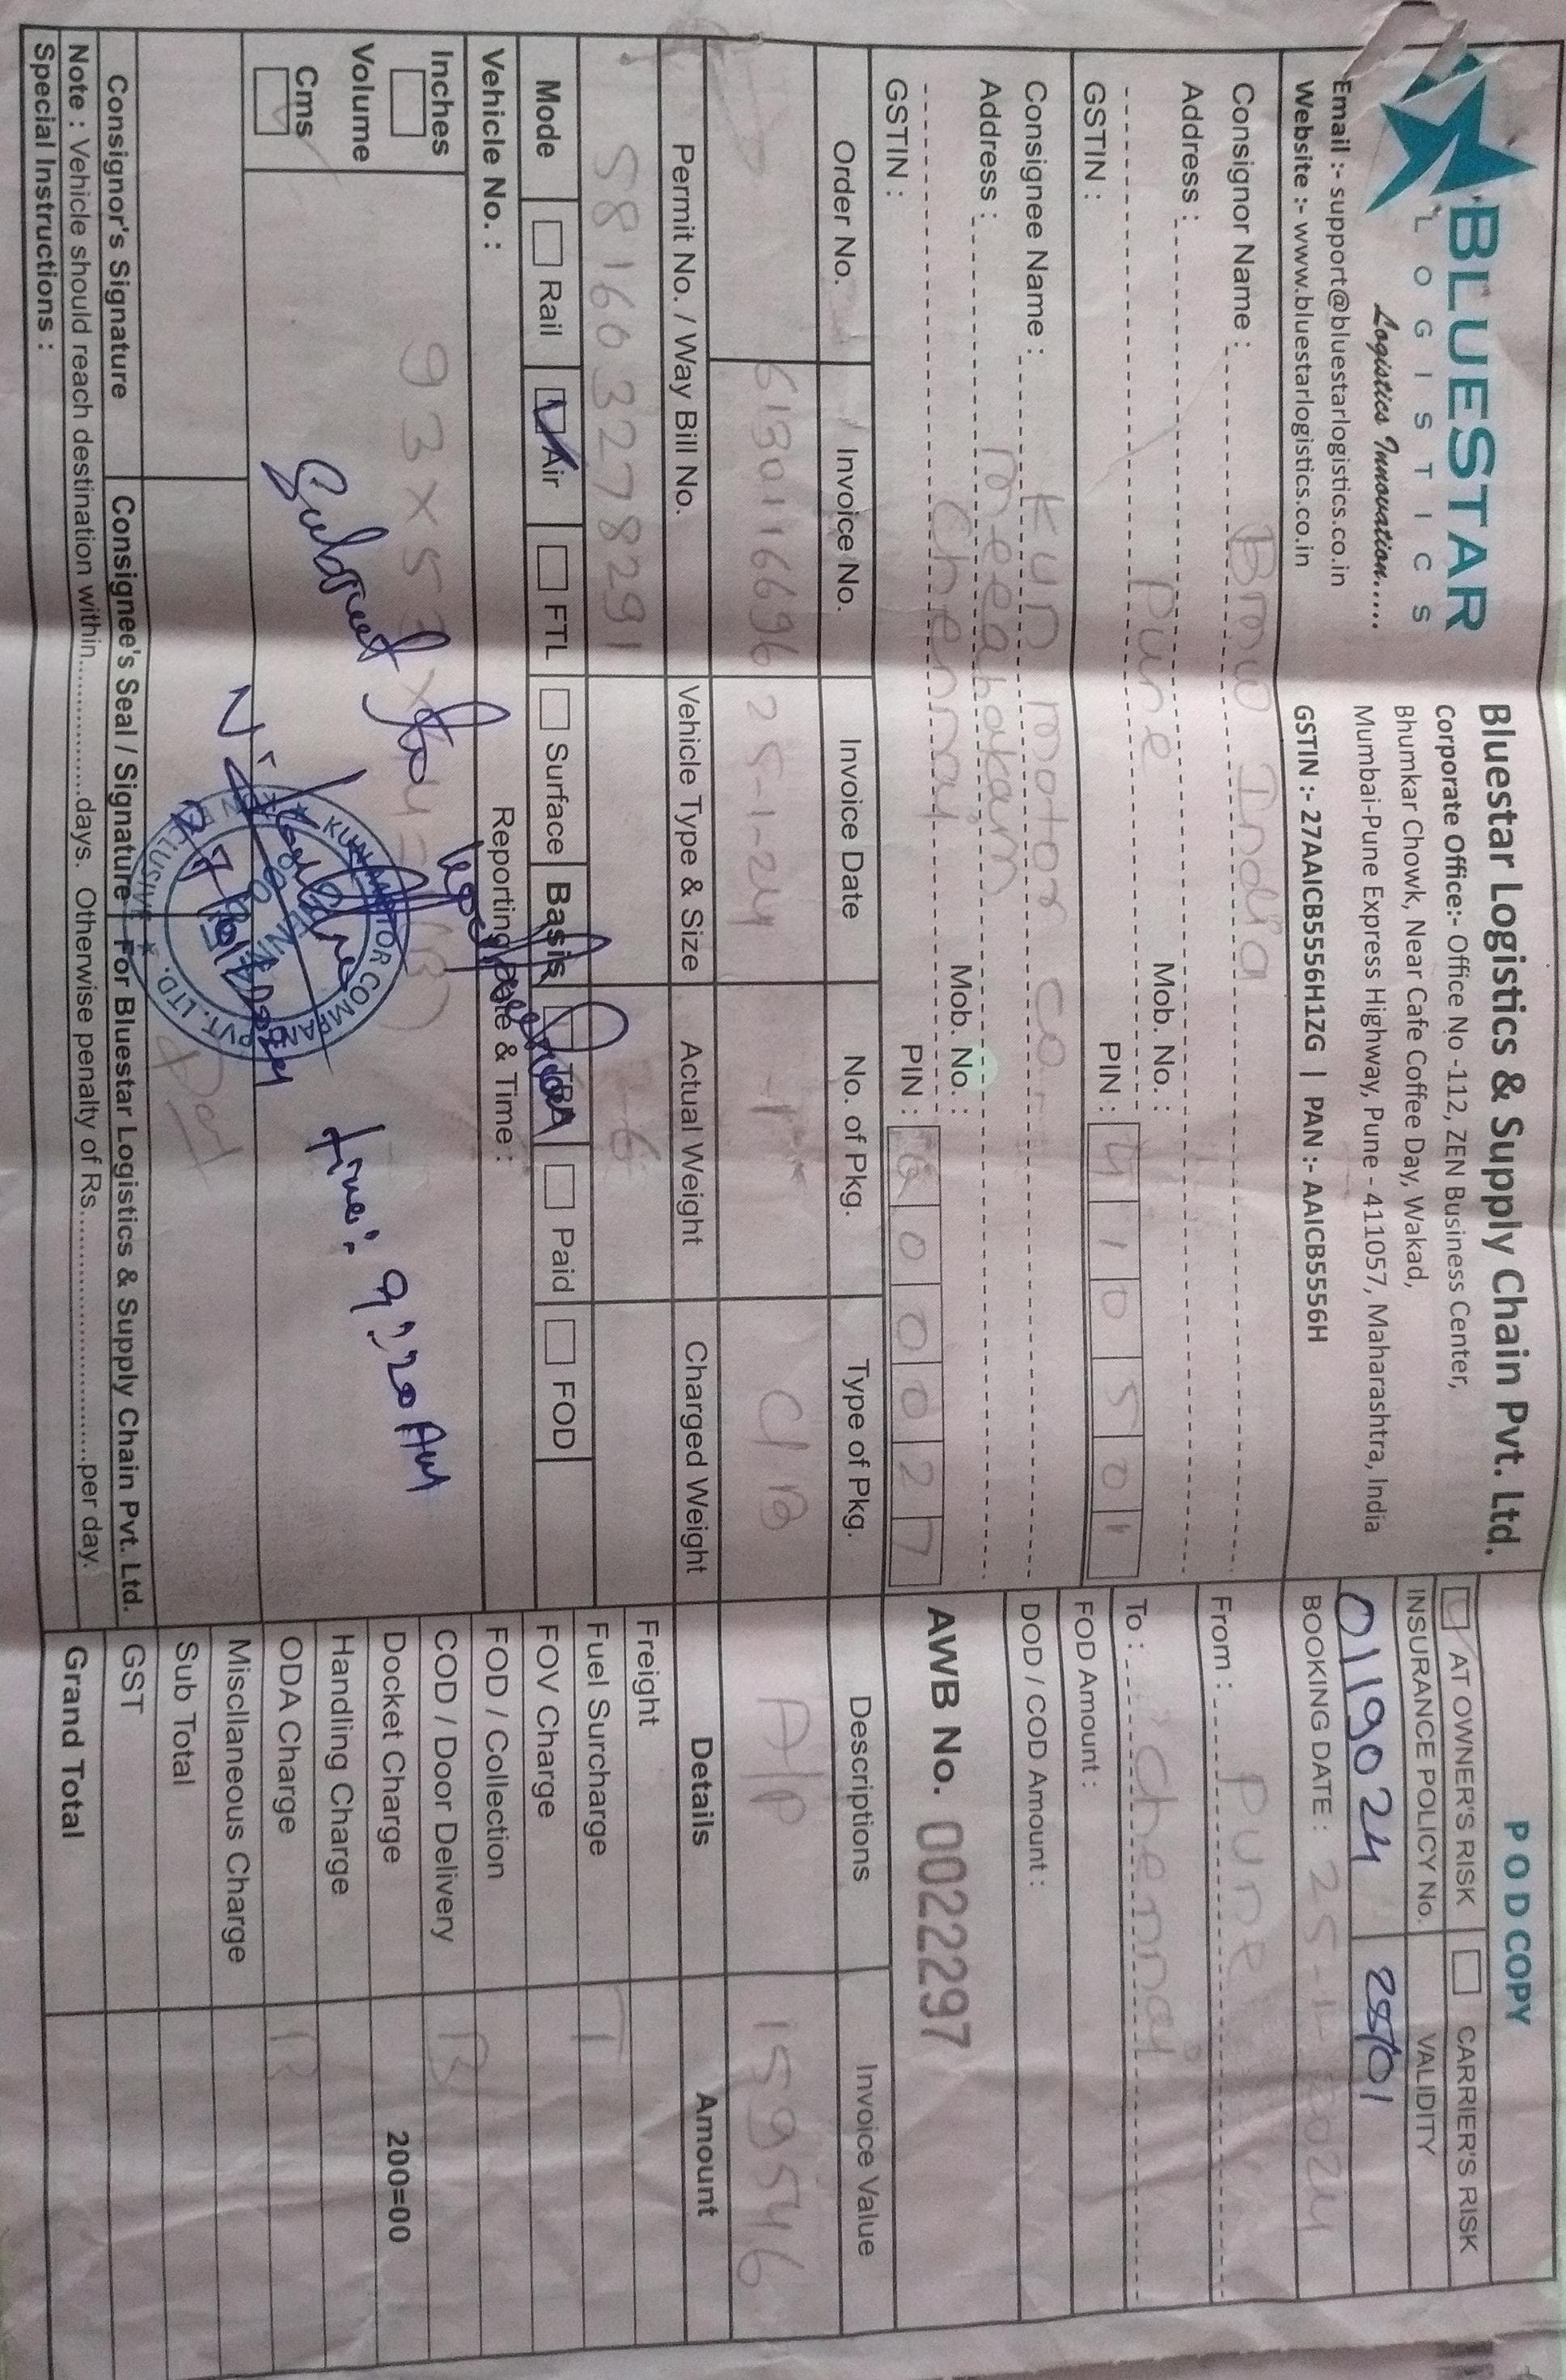 BLUESTAR
LOGISTICS
Logistics Innovation.....
Email :- support@bluestarlogistics.co.in
Website :- www.bluestarlogistics.co.in
Bluestar Logistics & Supply Chain Pvt. Ltd.
Corporate Office:- Office No -112, ZEN Business Center,
Bhumkar Chowk, Near Cafe Coffee Day, Wakad,
Mumbai-Pune Express Highway, Pune - 411057, Maharashtra, India
GSTIN :- 27AAICB5556H1ZG | PAN :- AAICB5556H
P O D COPY
AT OWNER'S RISK CARRIER'S RISK
INSURANCE POLICY No. VALIDITY
0119024 25/01
BOOKING DATE : 25-1-2024
Consignor Name : Bmw India
Address :
Pune Mob. No. :
GSTIN : PIN : 410501
From : Pune
To : Chennai
FOD Amount :
DOD / COD Amount :
Consignee Name : Kun motor co.
Address : meeabakam
Chennai Mob. No. :
GSTIN : PIN : 600027
AWB No. 0022297
Order No. Invoice No. Invoice Date No. of Pkg. Type of Pkg. Descriptions Invoice Value
6130116696 25-1-24 -1- C/B A/P 159546
Permit No. / Way Bill No. Vehicle Type & Size Actual Weight Charged Weight Details Amount
581603278291 6
Mode Rail Air FTL Surface Basis TBB Paid FOD
Vehicle No. : Reporting Date & Time :
Inches
Volume
Cms
93 X 5
Submit to
time: 9:20 AM
KUN MOTOR COMPANY PVT. LTD.
KUN EXCLUSIVE
CHENNAI
Freight
Fuel Surcharge T
FOV Charge
FOD / Collection
COD / Door Delivery B
Docket Charge 200=00
Handling Charge
ODA Charge B
Miscllaneous Charge
Sub Total
GST
Grand Total
Consignor's Signature Consignee's Seal / Signature For Bluestar Logistics & Supply Chain Pvt. Ltd.
Note : Vehicle should reach destination within.................days. Otherwise penalty of Rs................................per day.
Special Instructions :